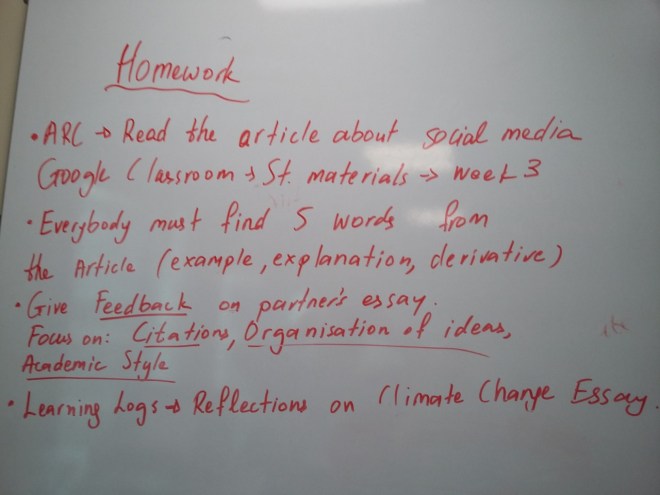 Homework
• ARC → Read the article about social media
Google Classroom → St. materials → week 3
• Everybody must find 5 words from
the Article (example, explanation, derivative)
• Give Feedback on partner's essay.
Focus on: Citations, Organisation of ideas,
Academic Style
• Learning Logs → Reflections on Climate Change Essay.